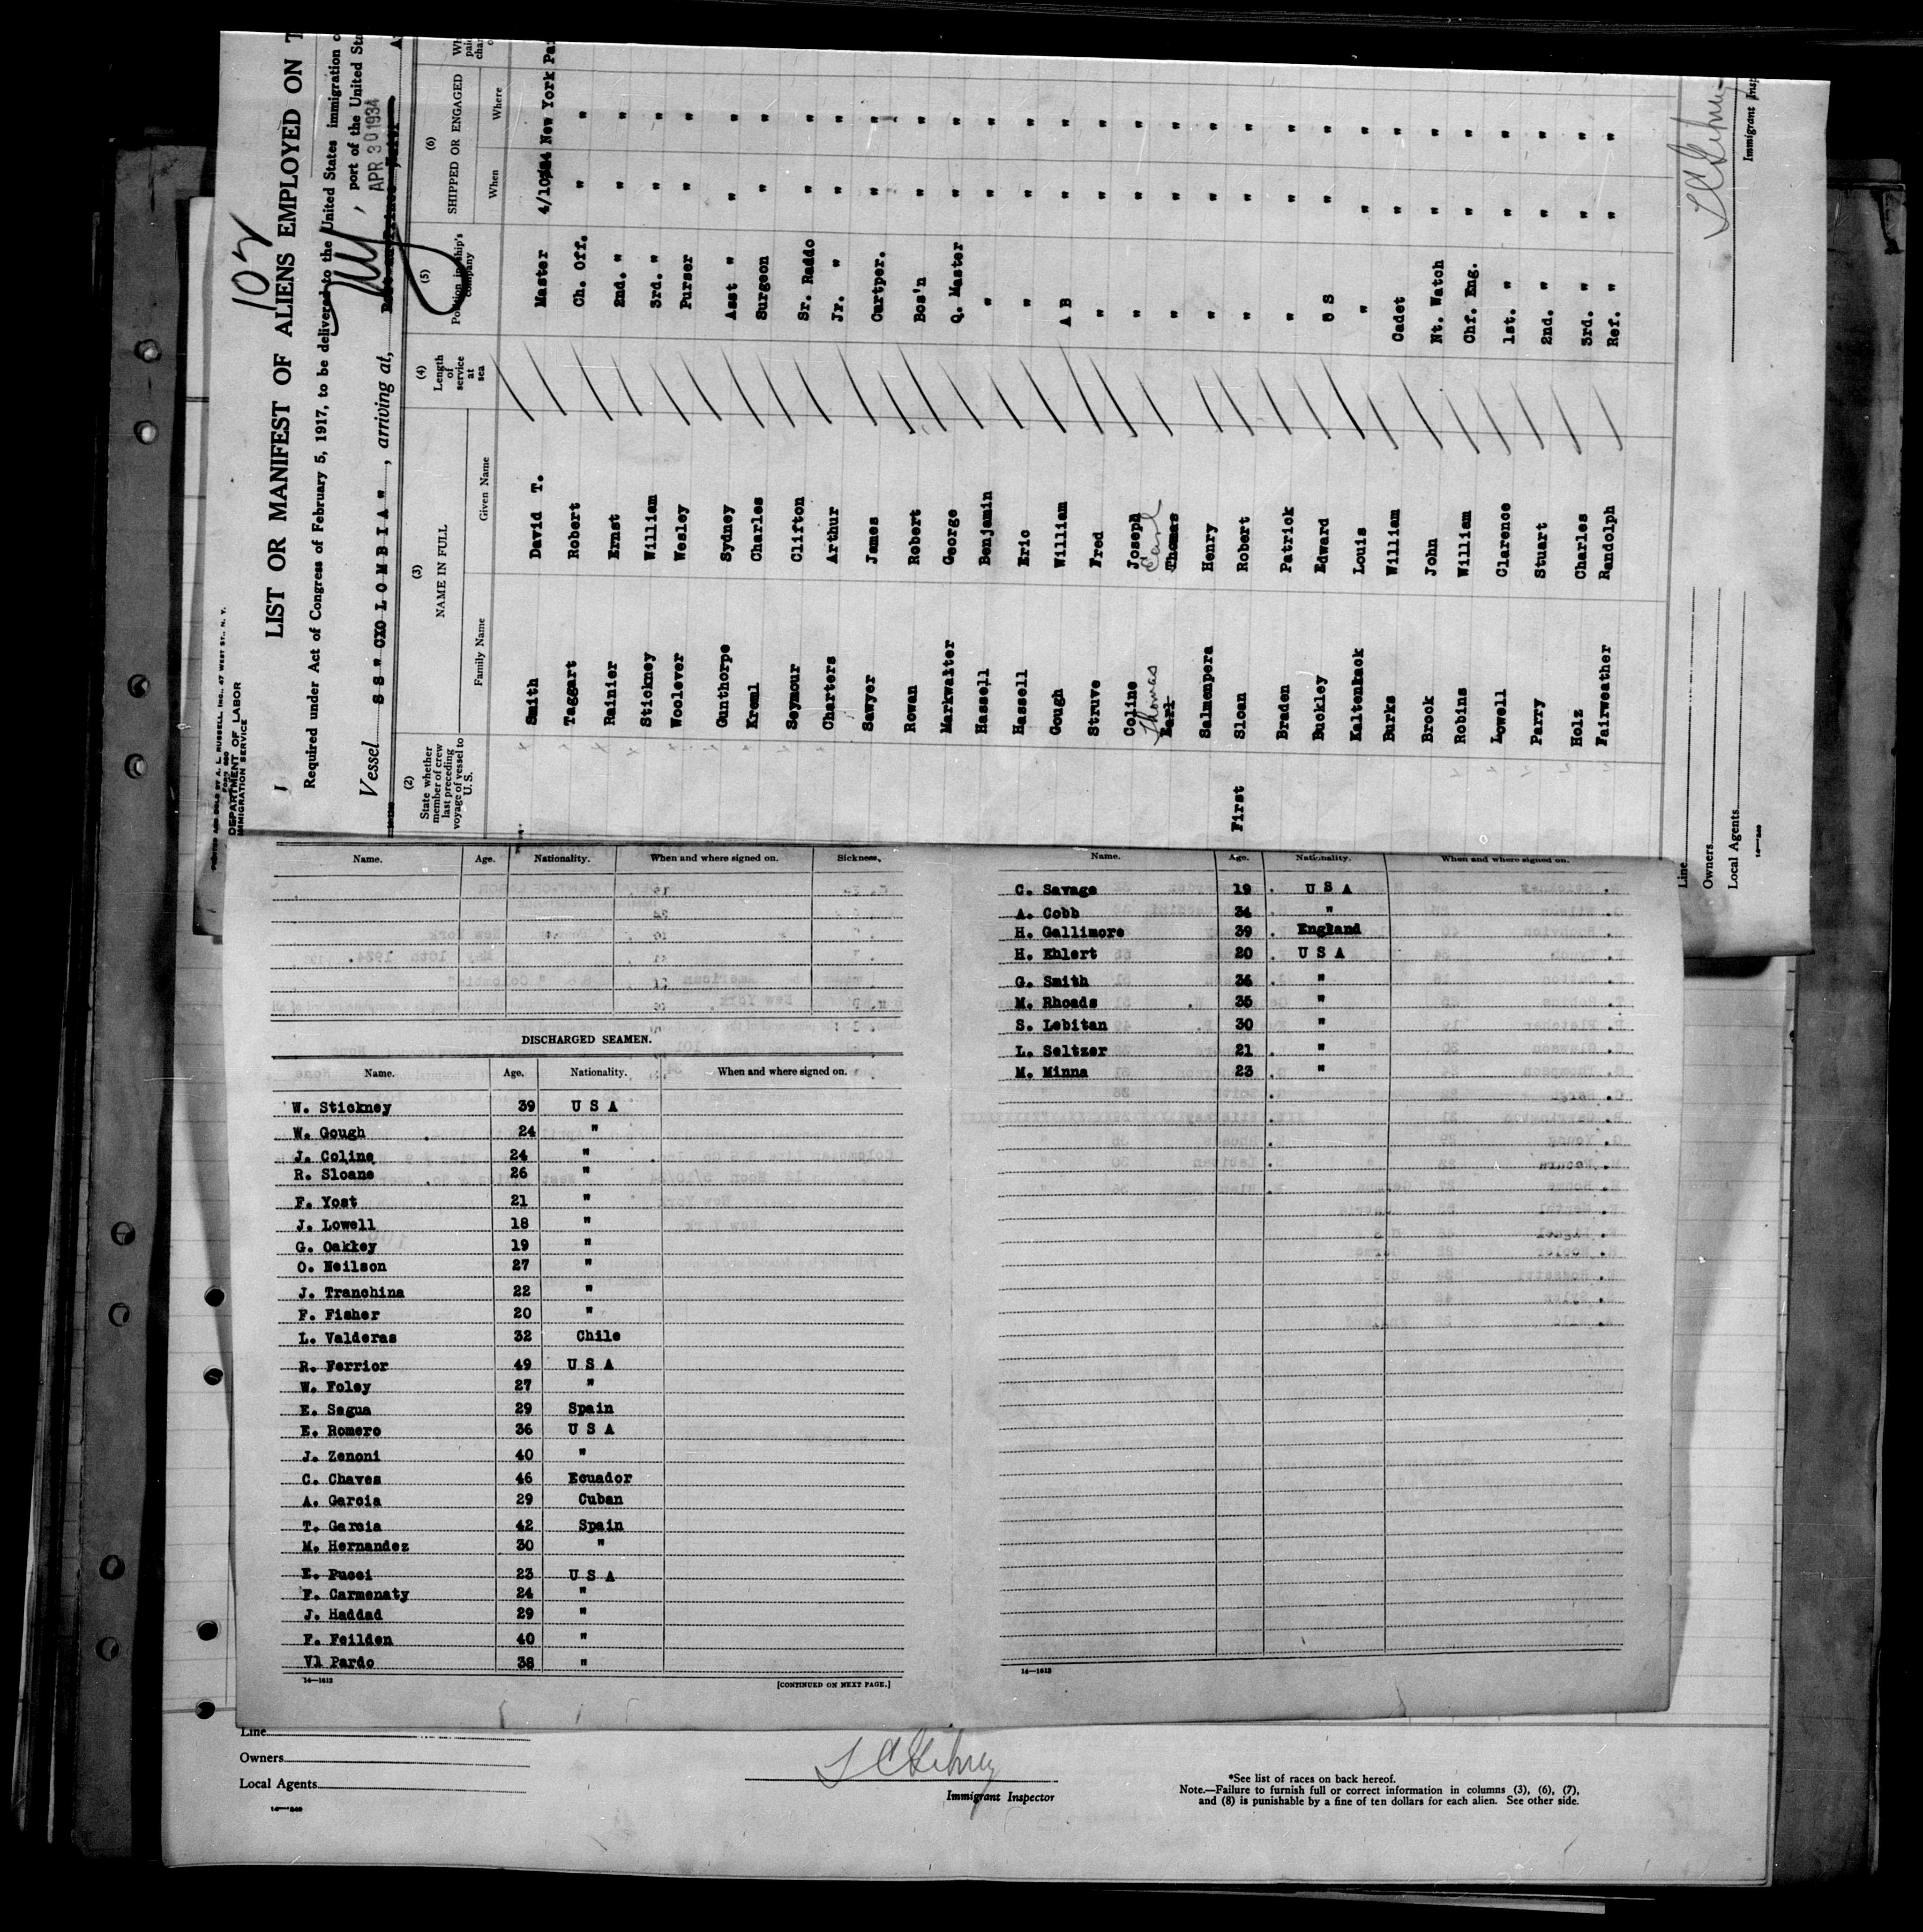 102
PRINTED AND SOLD BY A. L. RUSSELL, INC., 47 WEST ST., N. Y.
DEPARTMENT OF LABOR
IMMIGRATION SERVICE
LIST OR MANIFEST OF ALIENS EMPLOYED ON T
Required under Act of Congress of February 5, 1917, to be delivered to the United States immigration
port of the United Sta
APR 30 1934
Vessel S S " COLOMBIA ", arriving at,
(2) State whether member of crew last preceding voyage of vessel to U. S.
(3) NAME IN FULL
Family Name Given Name
(4) Length of service at sea
(5) Position in ship's company
(6) SHIPPED OR ENGAGED
When Where
Smith David T. Master New York
Taggart Robert Ch. Off. " "
Rainier Ernst 2nd. " " "
Stickney William 3rd. " " "
Woolever Wesley Purser " "
Gunthorpe Sydney Asst " " "
Kreml Charles Surgeon " "
Seymour Clifton Sr. Raddo " "
Charters Arthur Jr. " " "
Sawyer James Cartper. " "
Rowan Robert Bos'n " "
Markwalter George Q. Master " "
Hassell Benjamin " " "
Hassell Eric " " "
Gough William A B " "
Struve Fred " " "
Coline Joseph " " "
Thomas Earl " " "
Earl Thomas
Salmenpera Henry " " "
First Sloan Robert " " "
Braden Patrick " " "
Buckley Edward O S " "
Kaltenback Louis " " "
Burks William Cadet " "
Brock John Nt. Watch " "
Robins William Chf. Eng. " "
Lowell Clarence 1st. " " "
Parry Stuart 2nd. " " "
Holz Charles 3rd. " " "
Fairweather Randolph Ref. " " "
Line
Owners
Local Agents
Immigrant Insp
Name. Age. Nationality. When and where signed on. Sickness.
DISCHARGED SEAMEN.
Name. Age. Nationality. When and where signed on.
W. Stickney 39 U S A
W. Gough 24 "
J. Coline 24 "
R. Sloane 26 "
F. Yost 21 "
J. Lowell 18 "
G. Oakkey 19 "
O. Neilson 27 "
J. Tranchina 22 "
F. Fisher 20 "
L. Valderas 32 Chile
R. Ferrior 49 U S A
W. Foley 27 "
E. Segua 29 Spain
E. Romero 36 U S A
J. Zenoni 40 "
C. Chaves 46 Ecuador
A. Garcia 29 Cuban
T. Garcia 42 Spain
M. Hernandez 30 "
E. Pucci 23 U S A
F. Carmenaty 24 "
J. Haddad 29 "
F. Feilden 40 "
Vl Pardo 38 "
14—1612
[CONTINUED ON NEXT PAGE.]
Name. Age. Nationality. When and where signed on.
C. Savage 19 U S A
A. Cobb 34 "
H. Gallimore 39 England
H. Ehlert 20 U S A
G. Smith 36 "
M. Rhoads 35 "
S. Lebitan 30 "
L. Seltzer 21 "
M. Minna 23 "
14—1612
Line
Owners
Local Agents
14—240
Immigrant Inspector
*See list of races on back hereof.
Note.—Failure to furnish full or correct information in columns (3), (6), (7),
and (8) is punishable by a fine of ten dollars for each alien. See other side.